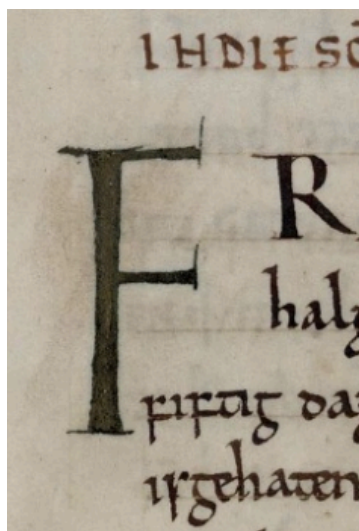 IN DIE SC̄
FR
halg
fiftig dag
is gehaten